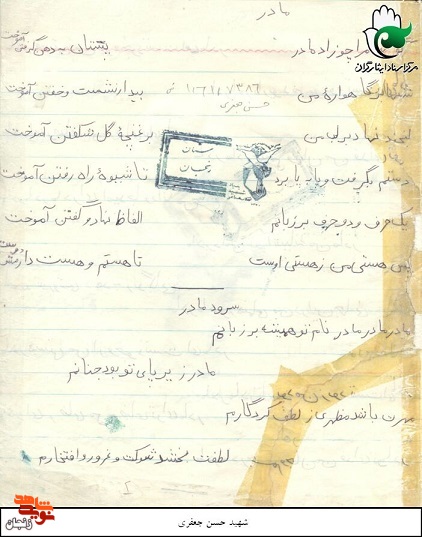 مادر
مرا چو زاد مادر پستان به دهن گرفتن آموخت
شبها بر گاهواره من بیدار نشست و خفتن آموخت
لبخند نهاد بر لب من بر غنچه گل شکفتن آموخت
دستم بگرفت و پا به پا برد تا شیوه راه رفتن آموخت
یک حرف و دو حرف بر زبانم الفاظ نهاد و گفتن آموخت
پس هستی من ز هستی اوست تا هستم و هست دارمش دوست
سرود مادر
مادر مادر مادر نام تو همیشه بر زبانم
مادر زیر پای تو بود جنانم
باشد مظهری از لطف کردگارم
لطفت بخشد شوکت و غرور و افتخارم
حسن جعفری
بنیاد
زنجان
مرکز اسناد ایثارگران
نوید شاهد
زنجان
شهید حسن جعفری